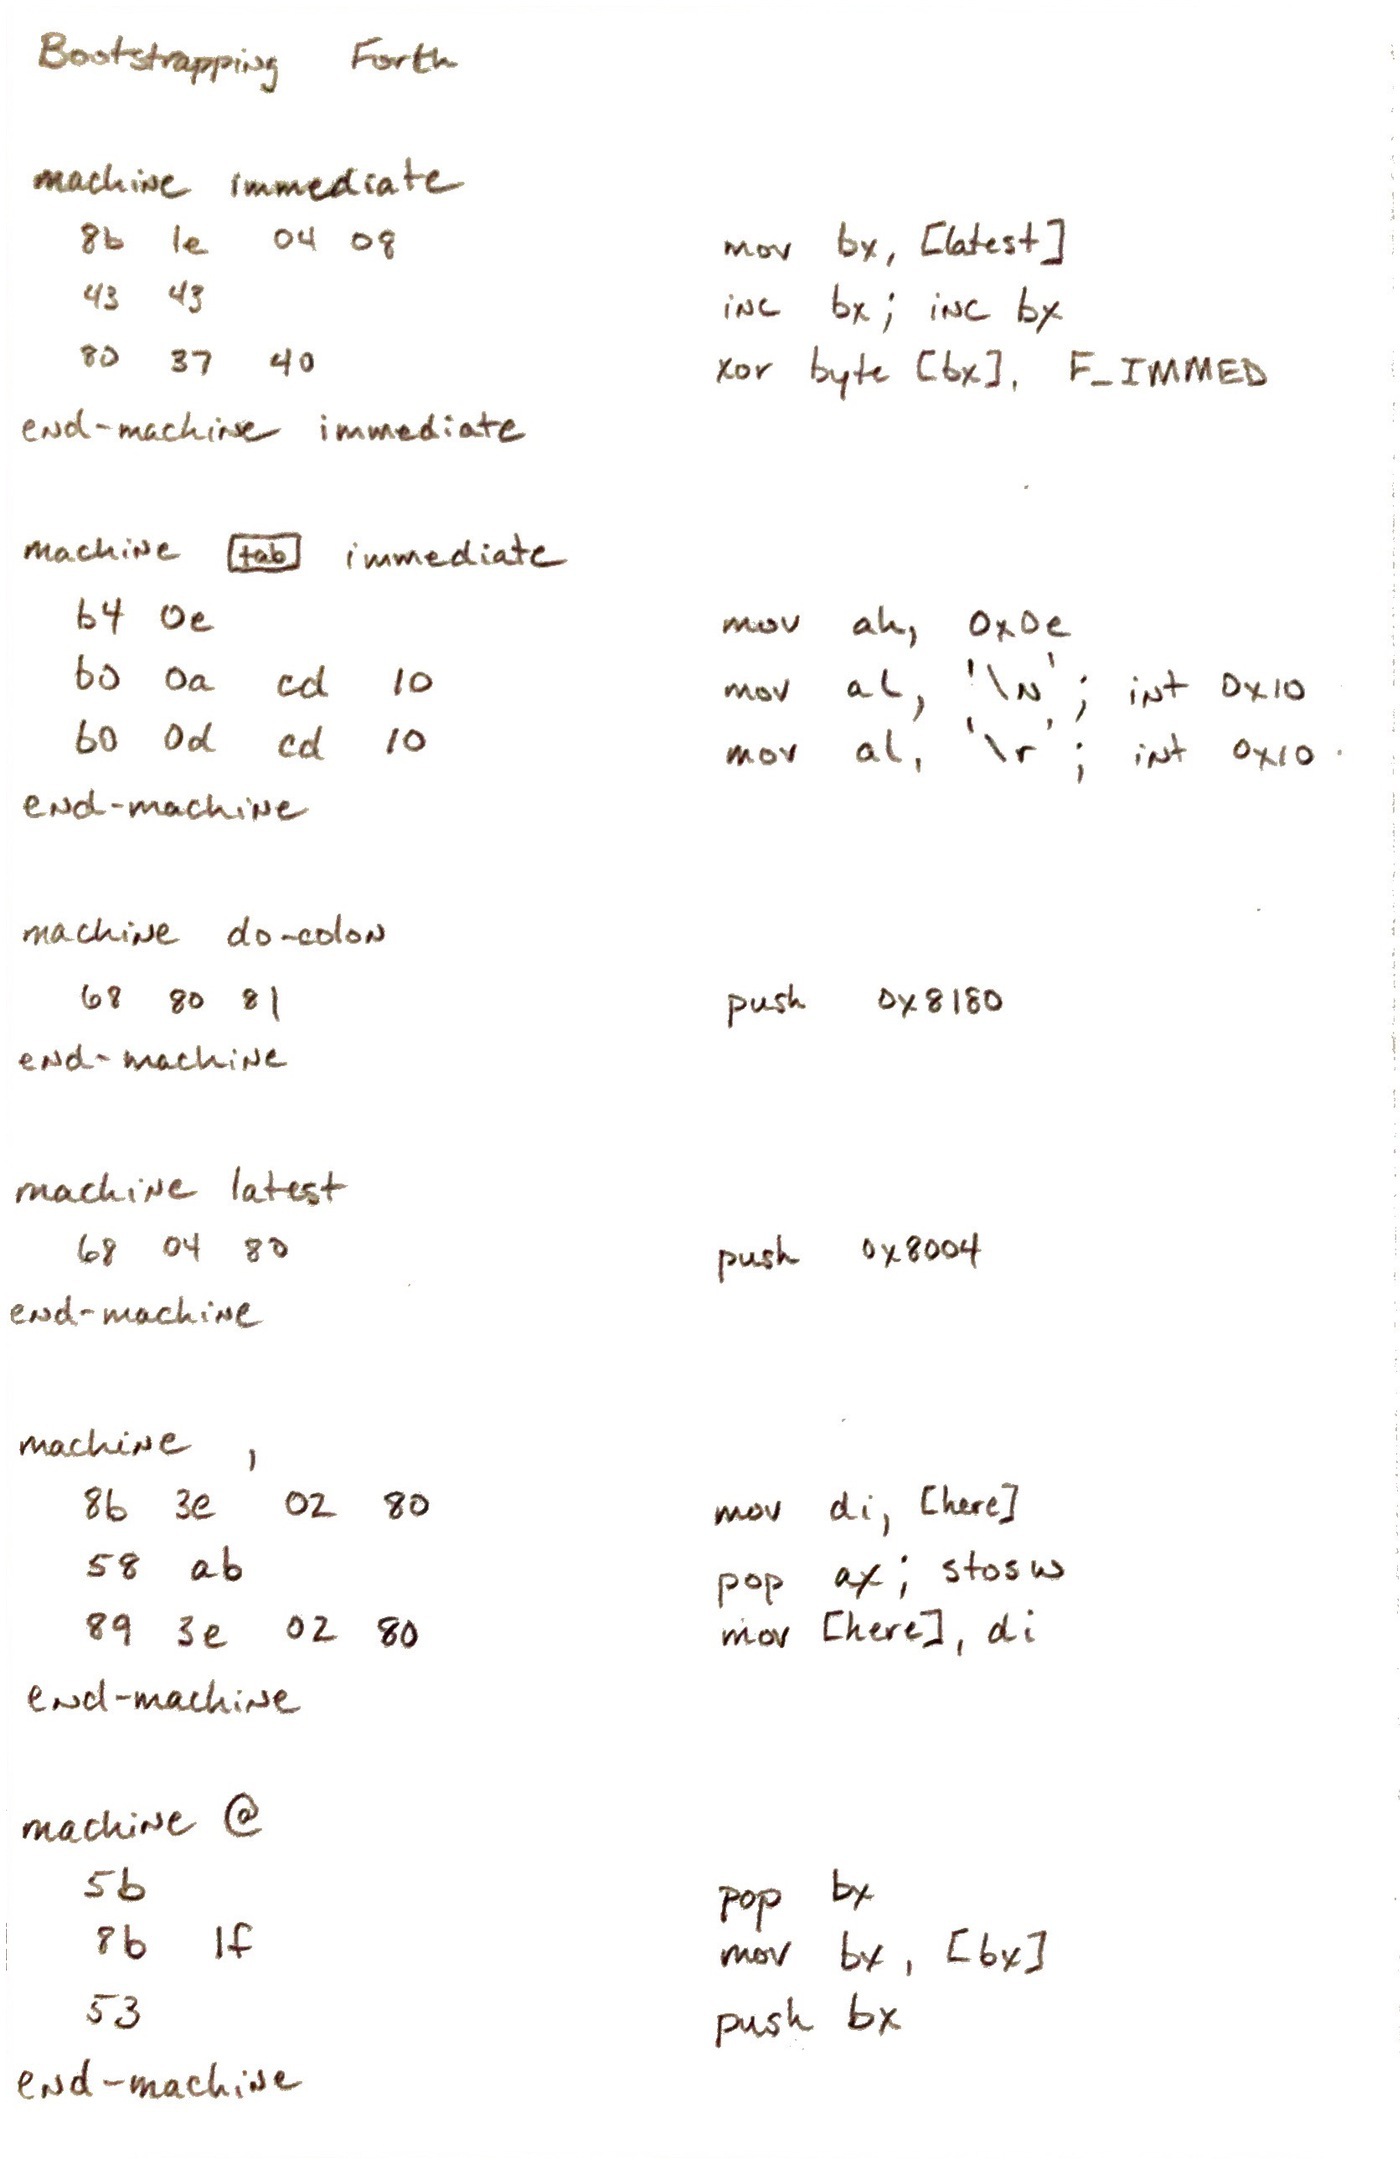 Bootstrapping Forth
machine immediate
8b 1e 04 08 mov bx, [latest]
43 43 inc bx; inc bx
80 37 40 xor byte [bx], F_IMMED
end-machine immediate
machine tab immediate
b4 0e mov ah, 0x0e
b0 0a cd 10 mov al, '\n'; int 0x10
b0 0d cd 10 mov al, '\r'; int 0x10
end-machine
machine do-colon
68 80 81 push 0x8180
end-machine
machine latest
68 04 80 push 0x8004
end-machine
machine ,
8b 3e 02 80 mov di, [here]
58 ab pop ax; stosw
89 3e 02 80 mov [here], di
end-machine
machine @
5b pop bx
8b 1f mov bx, [bx]
53 push bx
end-machine